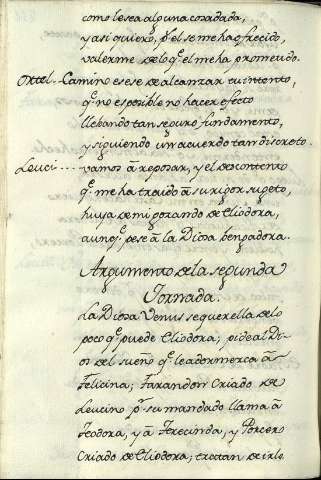 como lesea alguna cosa dada,
y asi quiero, pᵉ el se me ha ofrecido,
valerme de lo qᵉ el me ha prometido.
Ortel.- Camino es ese de alcanzar tu intento,
qᵉ no es posible no hacer efecto
llebando tan seguro fundamento,
y siguiendo un acuerdo tan discreto.
Leuci.... vamos à reposar, y el descontento
qᵉ me ha traido à su rigor sugeto,
huya de mi gozando de Eliodora,
aunqᵉ pese à la Diosa vengadora.
Argumento de la segunda
Jornada.
La Diosa Venus se querella de lo
poco qᵉ puede Eliodora; pide al Di-
os del sueño qᵉ le adormezca à
Felicina; Farandon Criado de
Leucino pʳ su mandado llama à
Teodora, y à Ferecinda, y Porcero
Criado de Eliodora; tratan de irlo